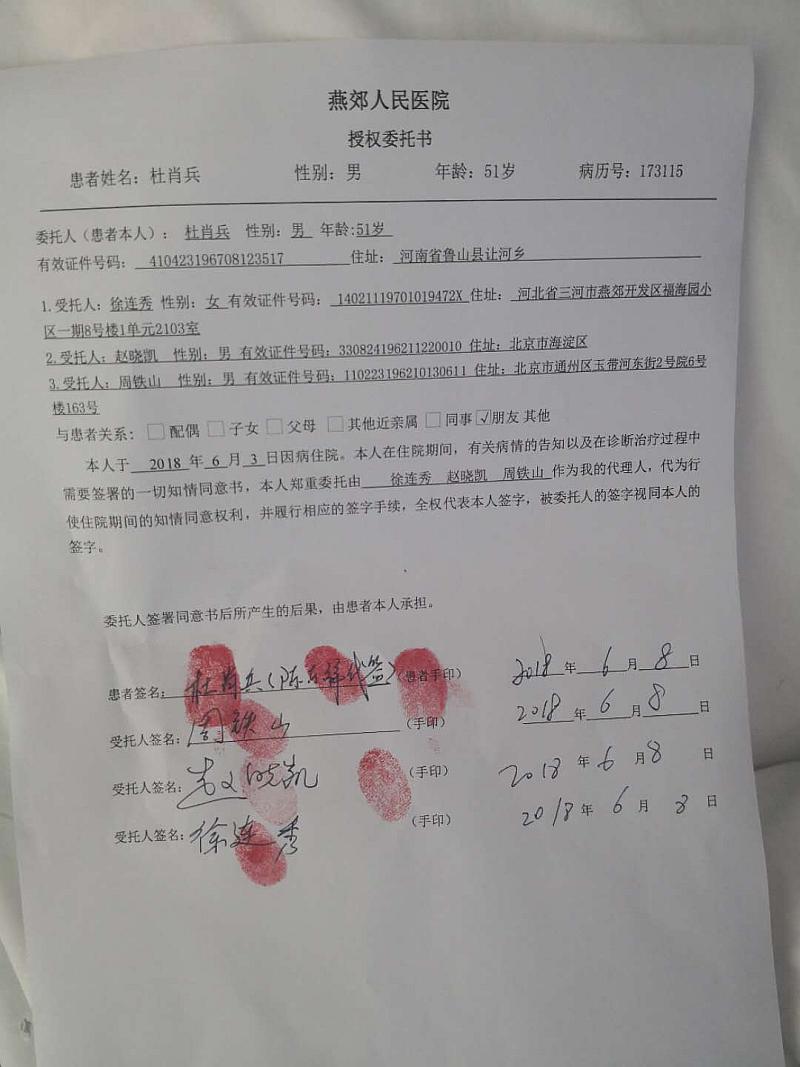 燕郊人民医院
授权委托书
患者姓名：杜肖兵 性别：男 年龄：51岁 病历号：173115
委托人（患者本人）： 杜肖兵 性别：男 年龄:51岁
有效证件号码： 410423196708123517 住址： 河南省鲁山县让河乡
1.受托人：徐连秀 性别：女 有效证件号码：14021119701019472X 住址： 河北省三河市燕郊开发区福海园小
区一期8号楼1单元2103室
2.受托人：赵晓凯 性别：男 有效证件号码：330824196211220010 住址：北京市海淀区
3.受托人：周铁山 性别：男 有效证件号码：110223196210130611 住址：北京市通州区玉带河东街2号院6号
楼163号
与患者关系：□配偶 □子女 □父母 □其他近亲属 □同事 ☑朋友 其他
本人于 2018 年 6 月 3 日因病住院。本人在住院期间，有关病情的告知以及在诊断治疗过程中
需要签署的一切知情同意书，本人郑重委托由 徐连秀 赵晓凯 周铁山 作为我的代理人，代为行
使住院期间的知情同意权利，并履行相应的签字手续，全权代表本人签字，被委托人的签字视同本人的
签字。
委托人签署同意书后所产生的后果，由患者本人承担。
患者签名： 杜肖兵（陈 代签）（患者手印） 2018 年 6 月 8 日
受托人签名：周铁山 （手印） 2018 年 6 月 8 日
受托人签名：赵晓凯 （手印） 2018 年 6 月 8 日
受托人签名：徐连秀 （手印） 2018 年 6 月 8 日